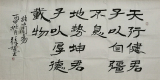 天行健君
子以自强
不息
地勢坤君
子以厚德
載物